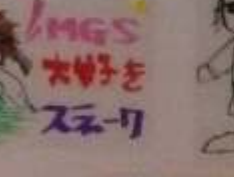 IMGS
大好き
スネーク